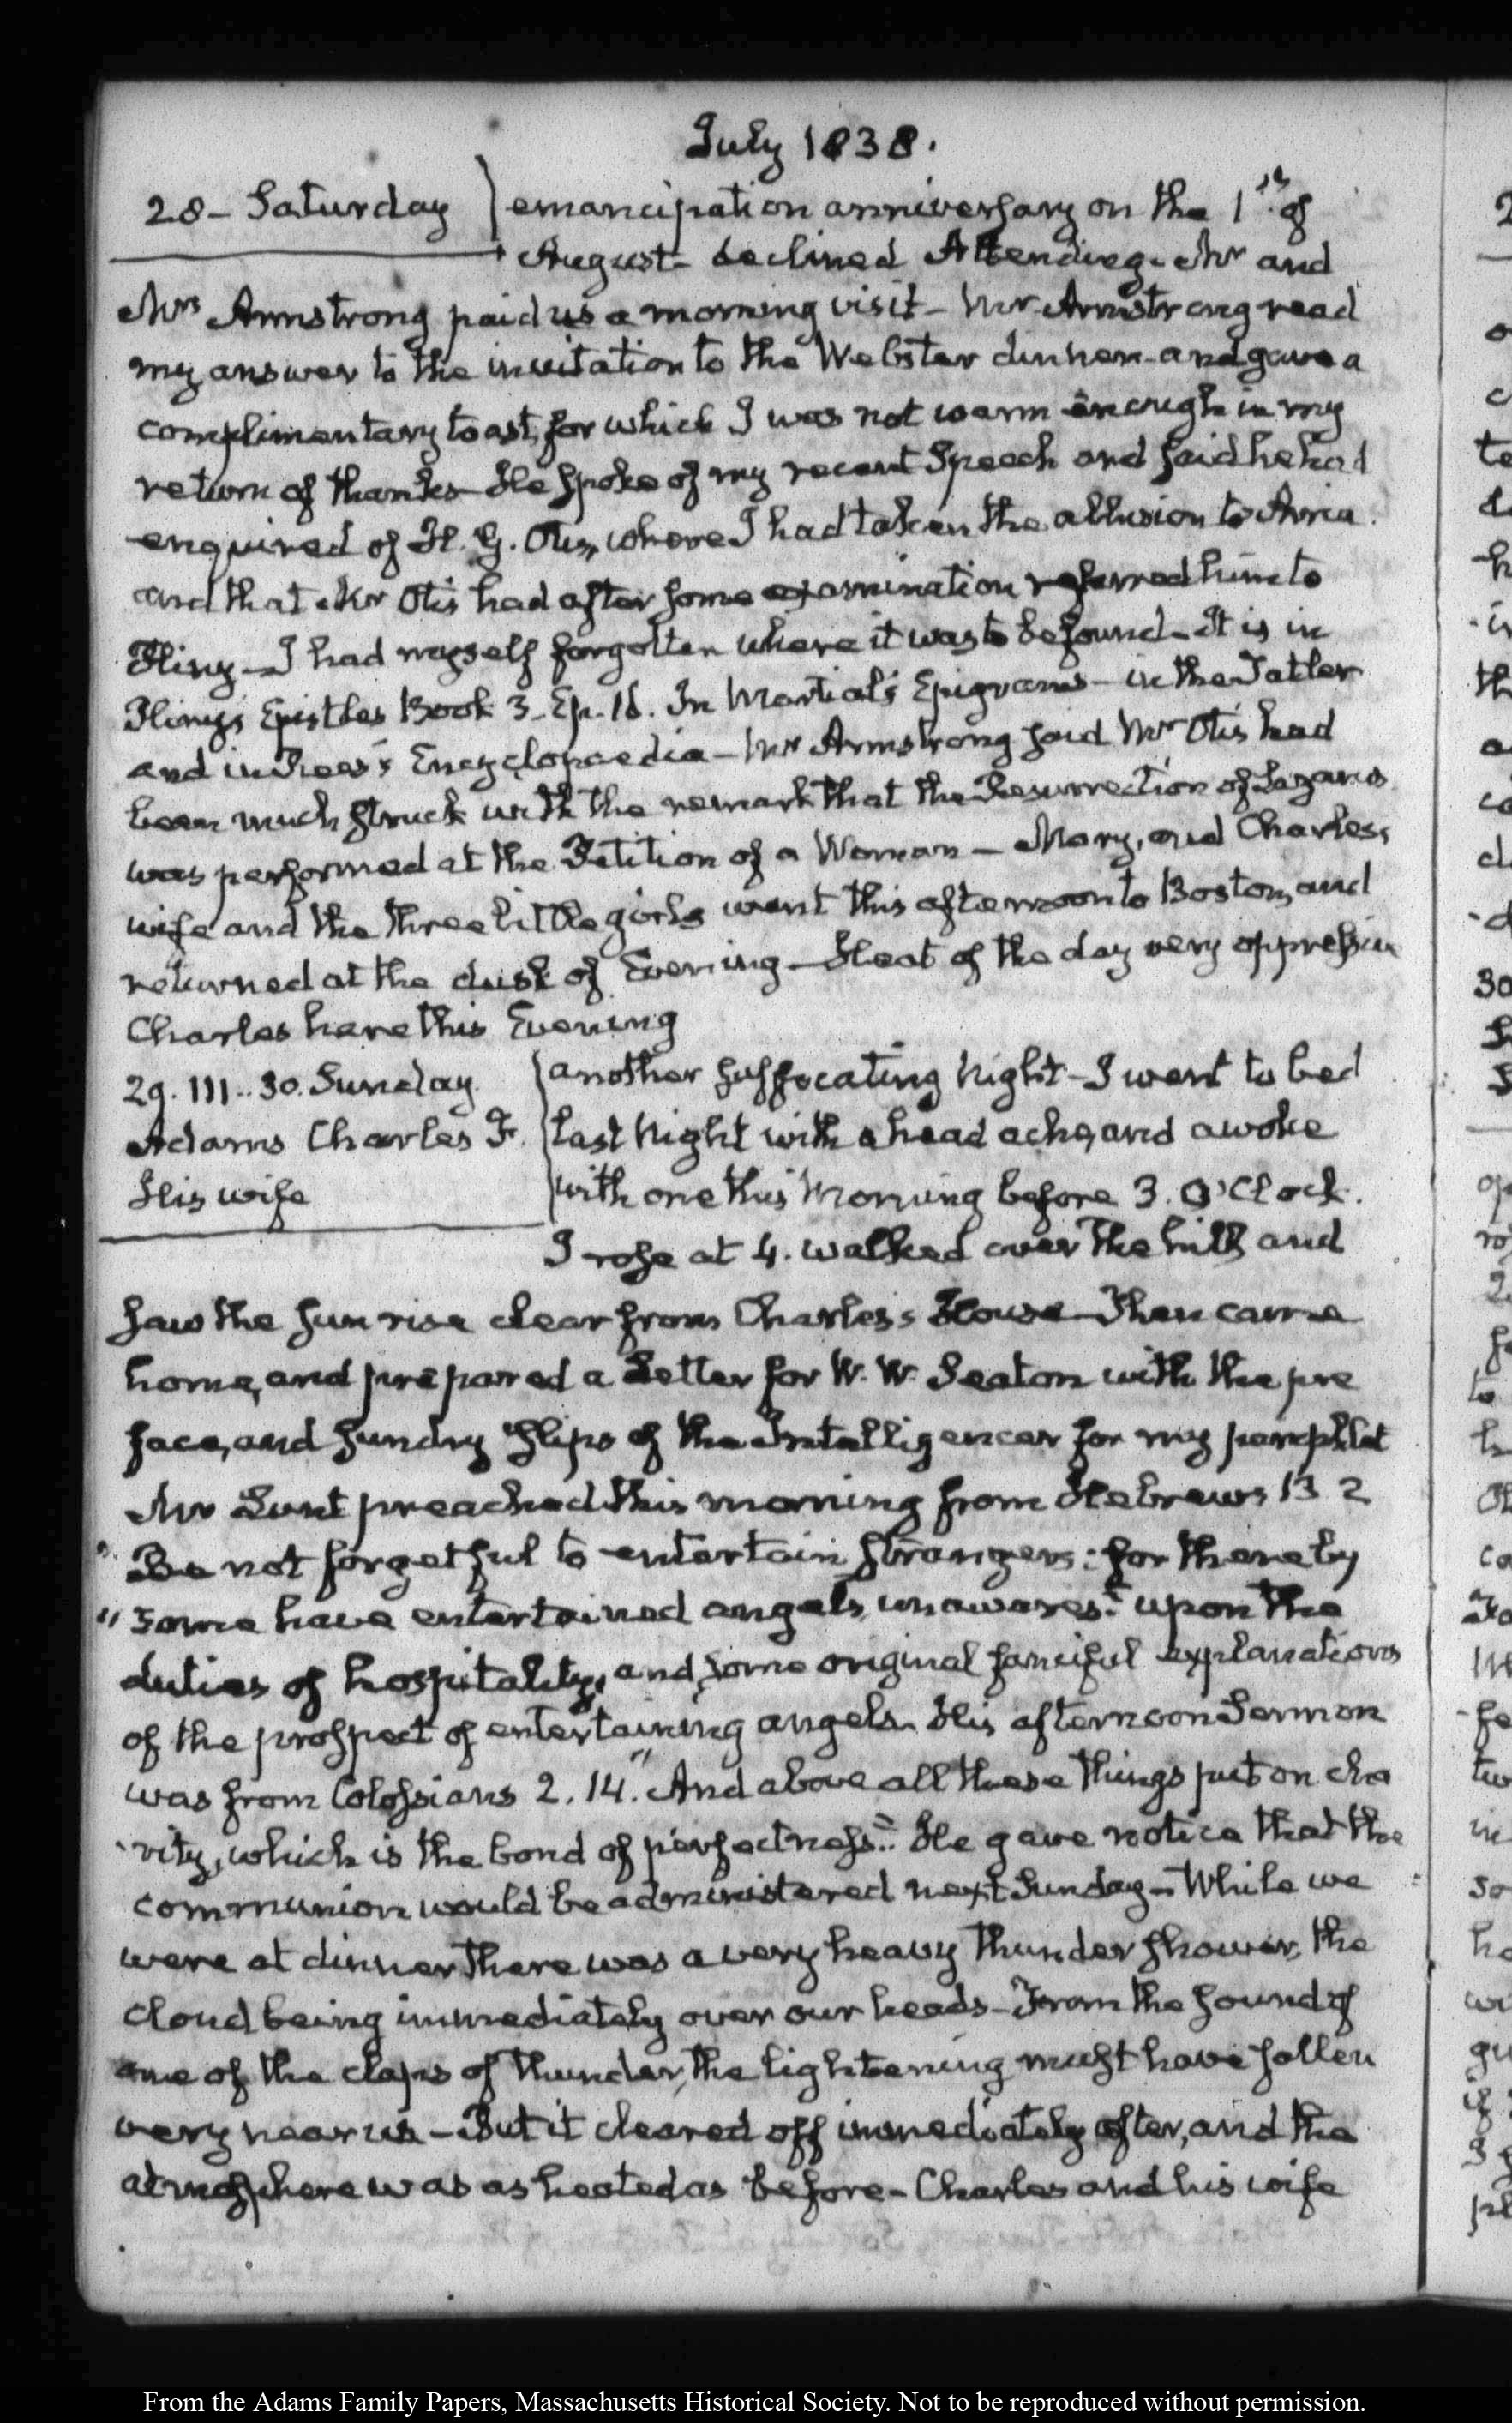 July 1838.
28 - Saturday } emancipation anniversary on the 1st of
August - declined Attending - Mr and
Mrs Armstrong paid us a morning visit - Mr Armstrong read
my answer to the invitation to the Webster dinner - and gave a
complimentary toast, for which I was not warm enough in my
return of thanks - He spoke of my recent Speech and said he had
enquired of H. G. Otis, where I had taken the allusion to Arria
and that Mr Otis had after some examination referred him to
Pliny - I had myself forgotten where it was to be found - It is in
Pliny's Epistles Book 3. Ep. 16. In Martial's Epigrams - in the Tatler
and in Rees's Encyclopaedia - Mr Armstrong said Mr Otis had
been much struck with the remark that the Resurrection of Lazarus
was performed at the Petition of a Woman - Mary, and Charles's
wife and the three little girls went this afternoon to Boston, and
returned at the dusk of Evening - Heat of the day very oppressive
Charles here this Evening
29. III.. 30. Sunday. { another suffocating Night - I went to bed
Adams Charles F. last Night with a head ache, and awoke
His wife with one this Morning before 3. O'Clock.
I rose at 4. walked over the hill, and
saw the sun rise clear from Charles's House - Then came
home, and prepared a Letter for W. W. Seaton with the pre
face, and sundry slips of the Intelligencer for my pamphlet
Mr Lunt preached this morning from Hebrews 13 2
" Be not forgetful to entertain strangers: for thereby
" some have entertained angels, unawares." upon the
duties of hospitality, and some original fanciful explanations
of the prospect of entertaining angels. His afternoon Sermon
was from Colossians 2. 14. "And above all these things put on cha
rity, which is the bond of perfectness." He gave notice that the
communion would be administered next Sunday - While we
were at dinner there was a very heavy thunder shower, the
cloud being immediately over our heads - From the sound of
one of the claps of thunder, the lightening must have fallen
very near us - But it cleared off immediately after, and the
atmosphere was as heated as before - Charles and his wife
From the Adams Family Papers, Massachusetts Historical Society. Not to be reproduced without permission.